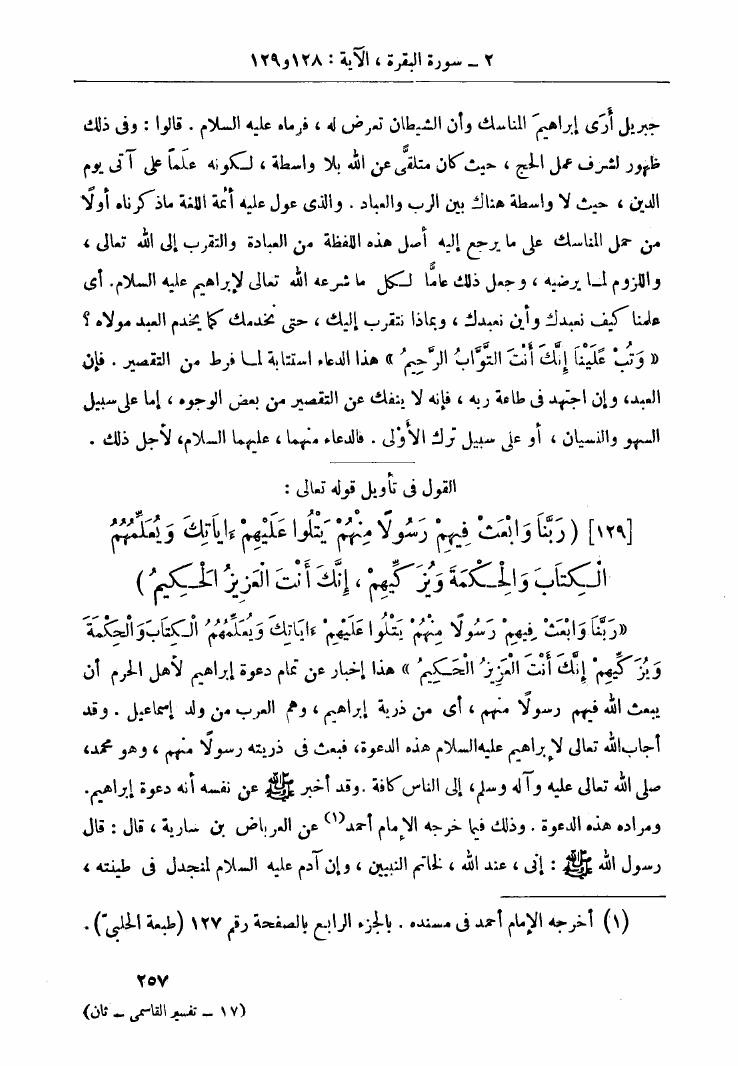 ٢ ــ سورة البقرة ، الآية : ١٢٨ و١٢٩
جبريل أَرَى إبراهيمَ المناسك وأن الشيطان تعرض له ، فرماه عليه السلام . قالوا : وفى ذلك
ظهور لشرف عمل الحج ، حيث كان متلقًّى عن الله بلا واسطة ، لكونه علَماً على آتى يوم
الدين ، حيث لا واسطة هناك بين الرب والعباد . والذى عول عليه أئمة اللغة ماذكرناه أولًا
من حمل المناسك على ما يرجع إليه أصل هذه اللفظة من العبادة والتقرب إلى الله تعالى ،
واللزوم لما يرضيه ، وجعل ذلك عامًّا لكل ما شرعه الله تعالى لإبراهيم عليه السلام. أى
علمنا كيف نعبدك وأين نعبدك ، وبماذا نتقرب إليك ، حتى نخدمك كما يخدم العبد مولاه ؟
« وَتُبْ عَلَيْنَا إِنَّكَ أَنْتَ التَّوَّابُ الرَّحِيمُ » هذا الدعاء استتابة لما فرط من التقصير . فإن
العبد، وإن اجتهد فى طاعة ربه ، فإنه لا ينفك عن التقصير من بعض الوجوه ، إما على سبيل
السهو والنسيان ، أو على سبيل ترك الأَوْلى . فالدعاء منهما ، عليهما السلام، لأجل ذلك .
القول فى تأويل قوله تعالى :
[١٢٩] ( رَبَّنَا وَابْعَثْ فِيهِمْ رَسُولًا مِنْهُمْ يَتْلُوا عَلَيْهِمْ ءَايَاتِكَ وَيُعَلِّمُهُمُ
الْكِتَابَ وَالْحِكْمَةَ وَيُزَكِّيهِمْ ، إِنَّكَ أَنْتَ الْعَزِيزُ الْحَكِيمُ )
«رَبَّنَا وَابْعَثْ فِيهِمْ رَسُولًا مِنْهُمْ يَتْلُوا عَلَيْهِمْ ءَايَاتِكَ وَيُعَلِّمُهُمُ الْكِتَابَ وَالْحِكْمَةَ
وَيُزَكِّيهِمْ إِنَّكَ أَنْتَ الْعَزِيزُ الْحَكِيمُ » هذا إخبار عن تمام دعوة إبراهيم لأهل الحرم أن
يبعث الله فيهم رسولًا منهم ، أى من ذرية إبراهيم ، وهم العرب من ولد إسماعيل . وقد
أجاب الله تعالى لإبراهيم عليه السلام هذه الدعوة، فبعث فى ذريته رسولًا منهم ، وهو محمد،
صلى الله تعالى عليه وآله وسلم، إلى الناس كافة .وقد أخبر ﷺ عن نفسه أنه دعوة إبراهيم.
ومراده هذه الدعوة . وذلك فيما خرجه الإمام أحمد(١) عن العرباض بن سارية ، قال : قال
رسول الله ﷺ : إنى ، عند الله ، لخاتم النبيين ، وإن آدم عليه السلام لمنجدل فى طينته ،
(١) أخرجه الإمام أحمد فى مسنده . بالجزء الرابع بالصفحة رقم ١٢٧ (طبعة الحلبىّ).
٢٥٧
(١٧ ــ تفسير القاسمى ــ ثان)